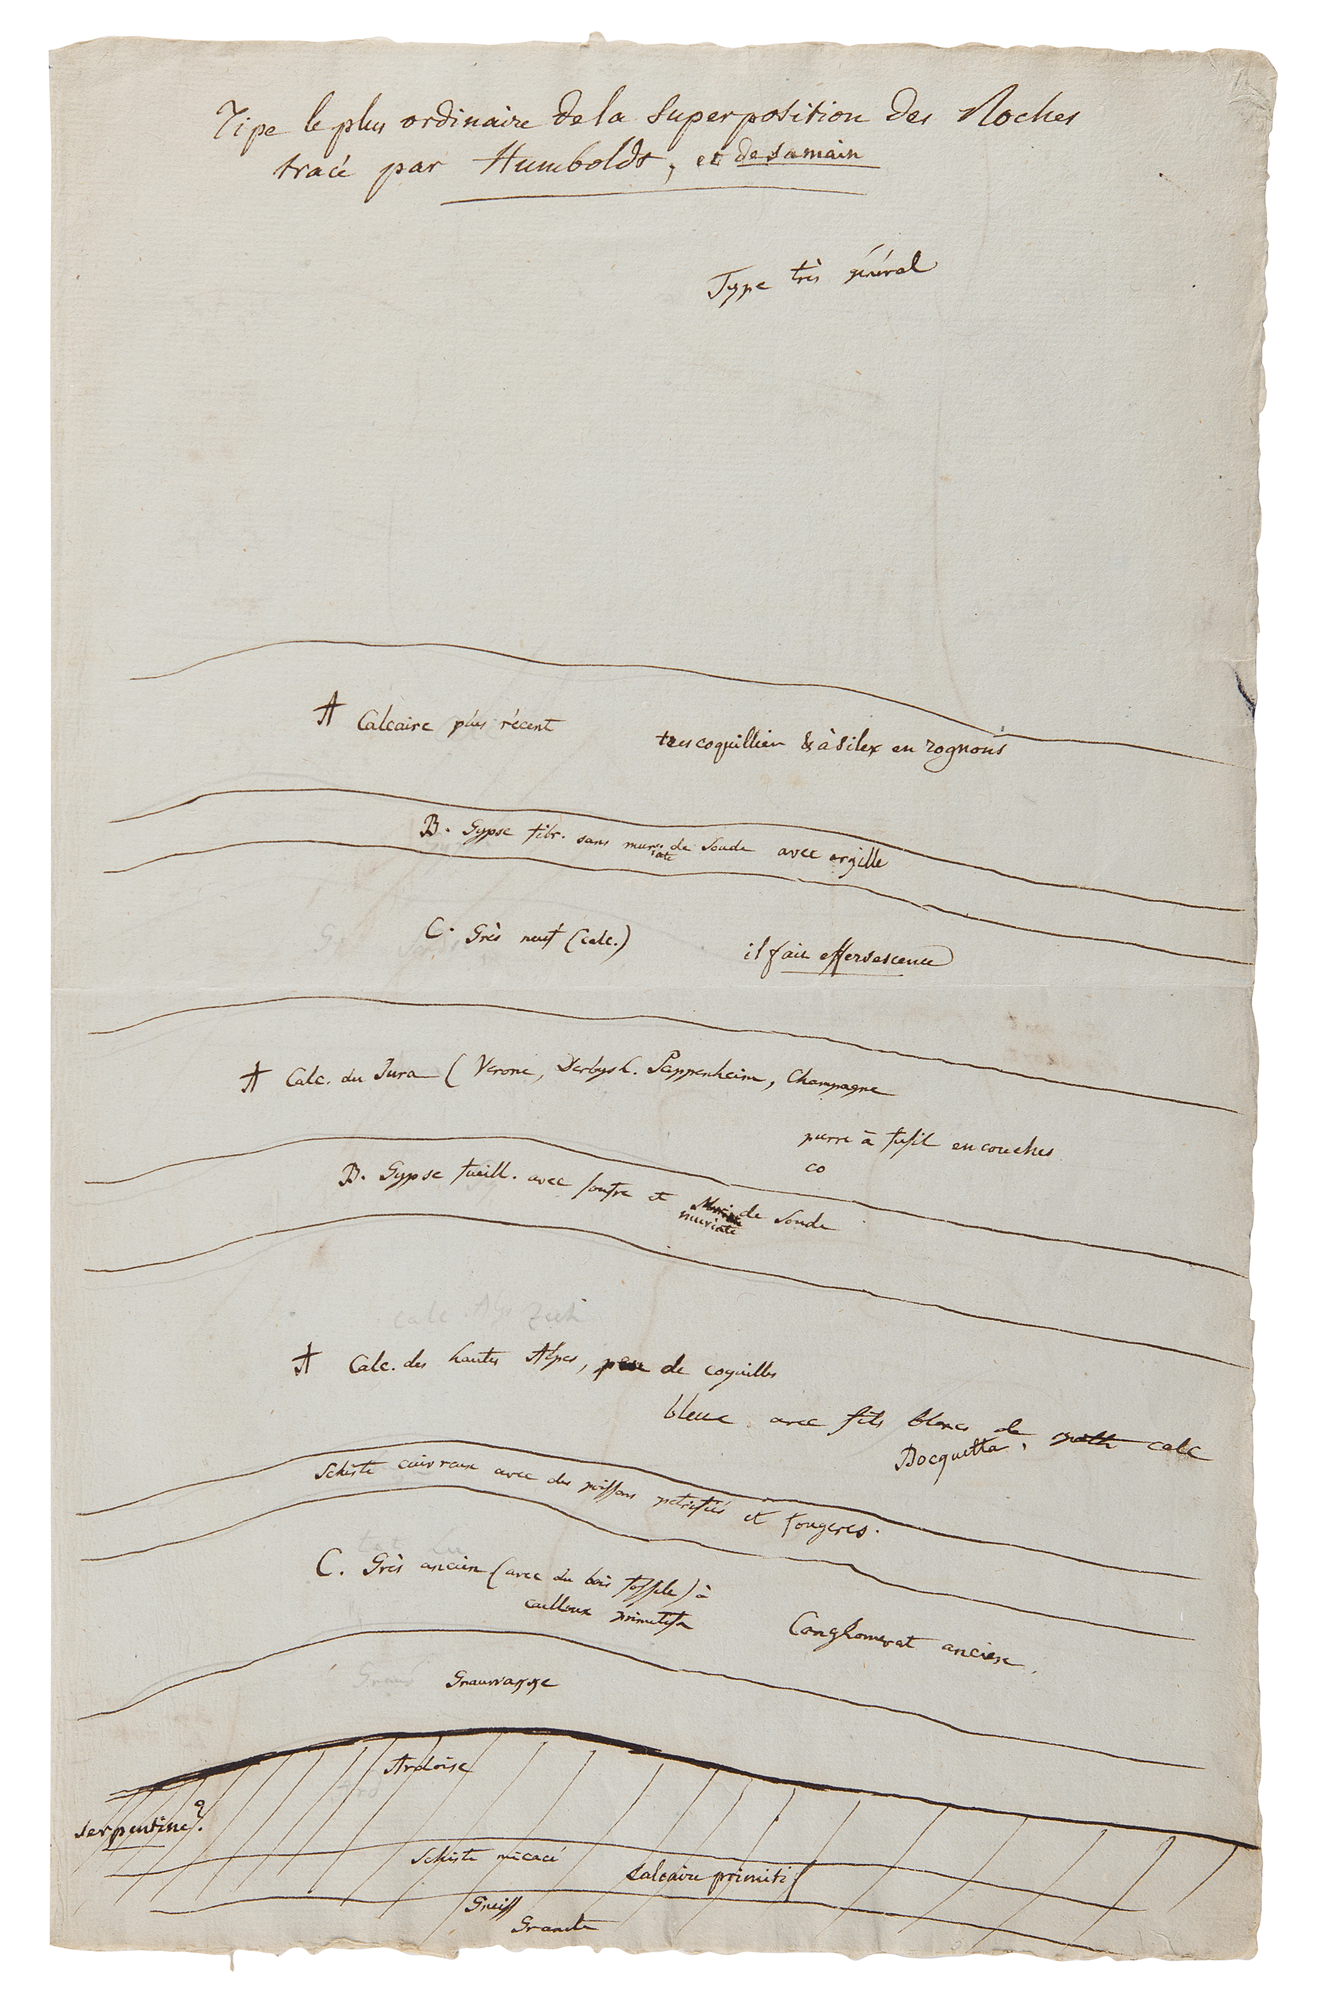 Tipe le plus ordinaire de la Superposition des Roches
tracé par Humboldt, et de sa main
Type très général
A Calcaire plus récent
tres coquillier & à silex en rognons
B. Gypse fibr. sans muriate de Soude avec argille
C. Grès neuf (calc.)
il fait effervescence
A Calc. du Jura (Verone, Derbysh. Pappenheim, Champagne
pierre à fusil en couches
co
B. Gypse fueill. avec soufre et muriate de Soude
calc. Alp Zech
A Calc. des hautes Alpes, peu de coquilles
bleue avec fils blancs de calc
Bocquetta.
Schiste cuivreux avec des poissons petrifiés et fougeres.
C. Grès ancien (avec du bois fossile) à
cailloux primitifs
Conglomerat ancien.
Grauwakke
Ardoise
Serpentine?
Schiste micacé
Calcaire primitif
Gneiss
Granite